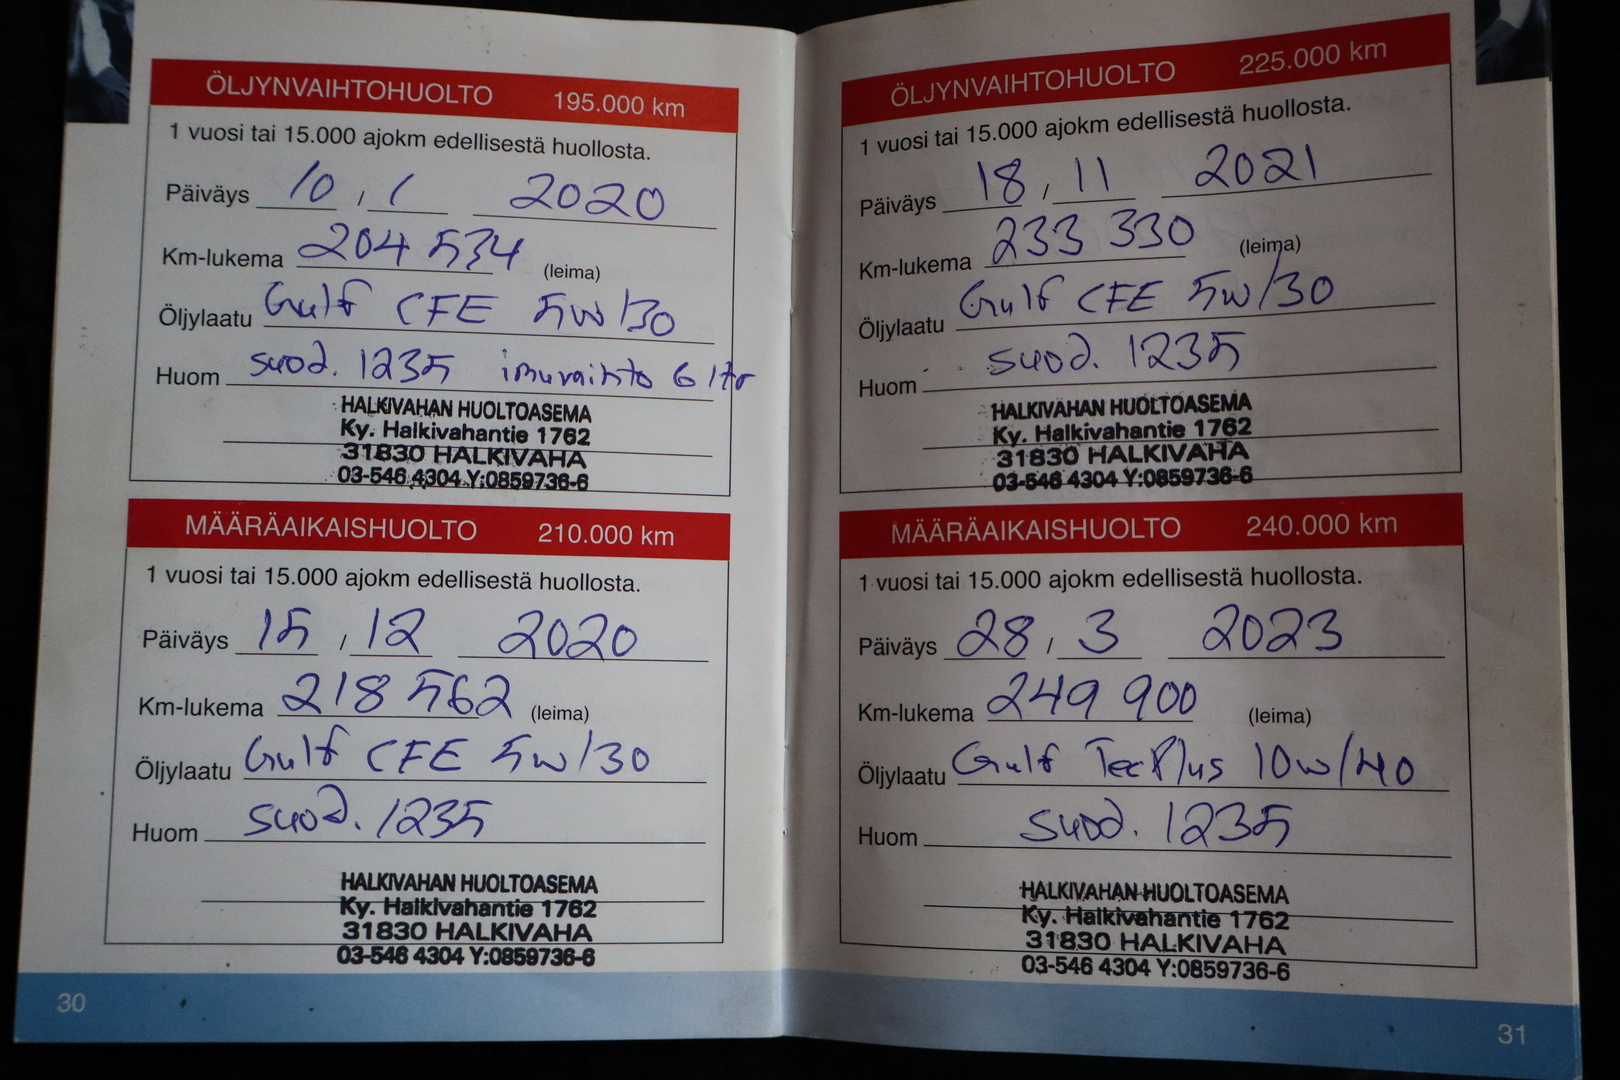 ÖLJYNVAIHTOHUOLTO 195.000 km
1 vuosi tai 15.000 ajokm edellisestä huollosta.
Päiväys 10 / 1 2020
Km-lukema 204 534 (leima)
Öljylaatu Gulf CFE 5w/30
Huom suod. 1235 imuvaihto 6 ltr
HALKIVAHAN HUOLTOASEMA
Ky. Halkivahantie 1762
31830 HALKIVAHA
03-546 4304 Y:0859736-6
MÄÄRÄAIKAISHUOLTO 210.000 km
1 vuosi tai 15.000 ajokm edellisestä huollosta.
Päiväys 15 / 12 2020
Km-lukema 218 562 (leima)
Öljylaatu Gulf CFE 5w/30
Huom suod. 1235
HALKIVAHAN HUOLTOASEMA
Ky. Halkivahantie 1762
31830 HALKIVAHA
03-546 4304 Y:0859736-6
30
ÖLJYNVAIHTOHUOLTO 225.000 km
1 vuosi tai 15.000 ajokm edellisestä huollosta.
Päiväys 18 / 11 2021
Km-lukema 233 330 (leima)
Öljylaatu Gulf CFE 5w/30
Huom suod. 1235
HALKIVAHAN HUOLTOASEMA
Ky. Halkivahantie 1762
31830 HALKIVAHA
03-546 4304 Y:0859736-6
MÄÄRÄAIKAISHUOLTO 240.000 km
1 vuosi tai 15.000 ajokm edellisestä huollosta.
Päiväys 28 / 3 2023
Km-lukema 249 900 (leima)
Öljylaatu Gulf TecPlus 10w/40
Huom suod. 1235
HALKIVAHAN HUOLTOASEMA
Ky. Halkivahantie 1762
31830 HALKIVAHA
03-546 4304 Y:0859736-6
31